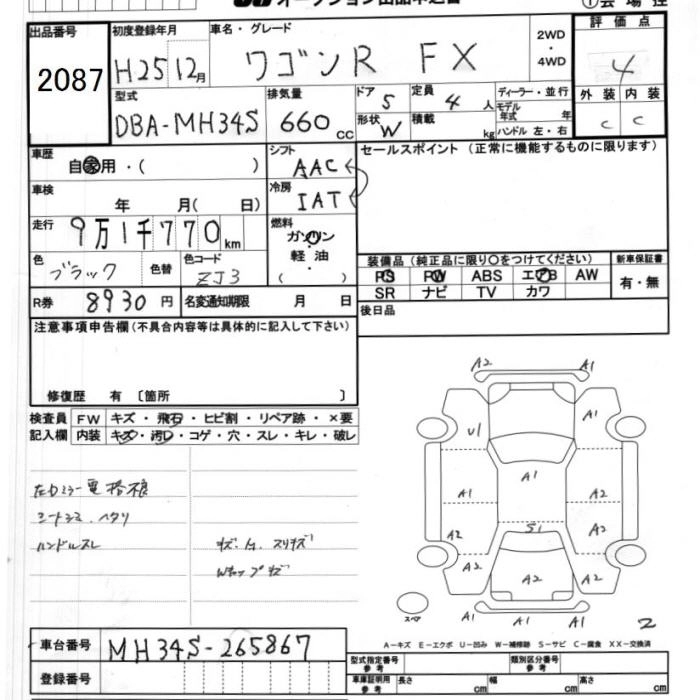 ①会場控
出品番号
2087
初度登録年月
H25 12月
車名・グレード
ワゴンR FX
2WD
・
4WD
評価点
4
外装 内装
C C
型式
DBA-MH34S
排気量
660 cc
ドア 5
形状 W
定員 4 人
積載 kg
ディーラー・並行
モデル年式 年
ハンドル 左・右
車歴
自家用・( )
車検
年 月( 日)
走行
9万1千770 km
色
ブラック
色替
色コード
ZJ3
R券 8930 円
名変通知期限 月 日
シフト
AAC
冷房
IAT
燃料
ガソリン
軽油
・
( )
セールスポイント(正常に機能するものに限ります)
装備品(純正品に限り○をつけてください)
PS PW ABS エアB AW
SR ナビ TV カワ
新車保証書
有・無
後日品
注意事項申告欄(不具合内容等は具体的に記入して下さい)
修復歴 有〔箇所 〕
検査員 FW キズ・飛石・ヒビ割・リペア跡・×要
記入欄 内装 キズ・汚レ・コゲ・穴・スレ・キレ・破レ
シートシミ、ヘタリ
ハンドルスレ
キズ、スリキズ
Wキャップキズ
A2 A1
A1
U1
A1
A1 A2
S1
A2 A2
A2 A2 A2
A1 A1 A1
スペア
2
A-キズ E-エクボ U-凹み W-補修跡 S-サビ C-腐食 XX-交換済
車台番号 MH34S-265867
登録番号
型式指定番号 参考
類別区分番号 参考
車庫証明用 参考 長さ cm 幅 cm 高さ cm